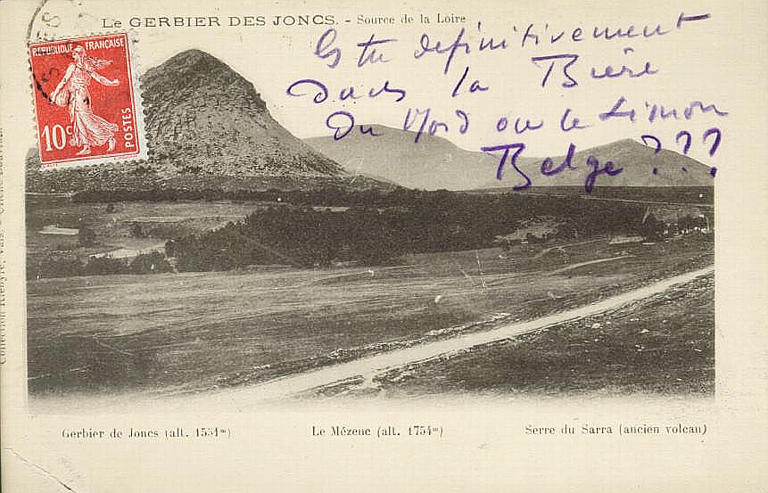 LE GERBIER DES JONCS. - Source de la Loire
Es tu definitivement
dans la Bière
du Nord ou le Limon
Belge???
RÉPUBLIQUE FRANÇAISE
10c POSTES
Gerbier de Joncs (alt. 1551m)
Le Mézenc (alt. 1754m)
Serre du Sarra (ancien volcan)